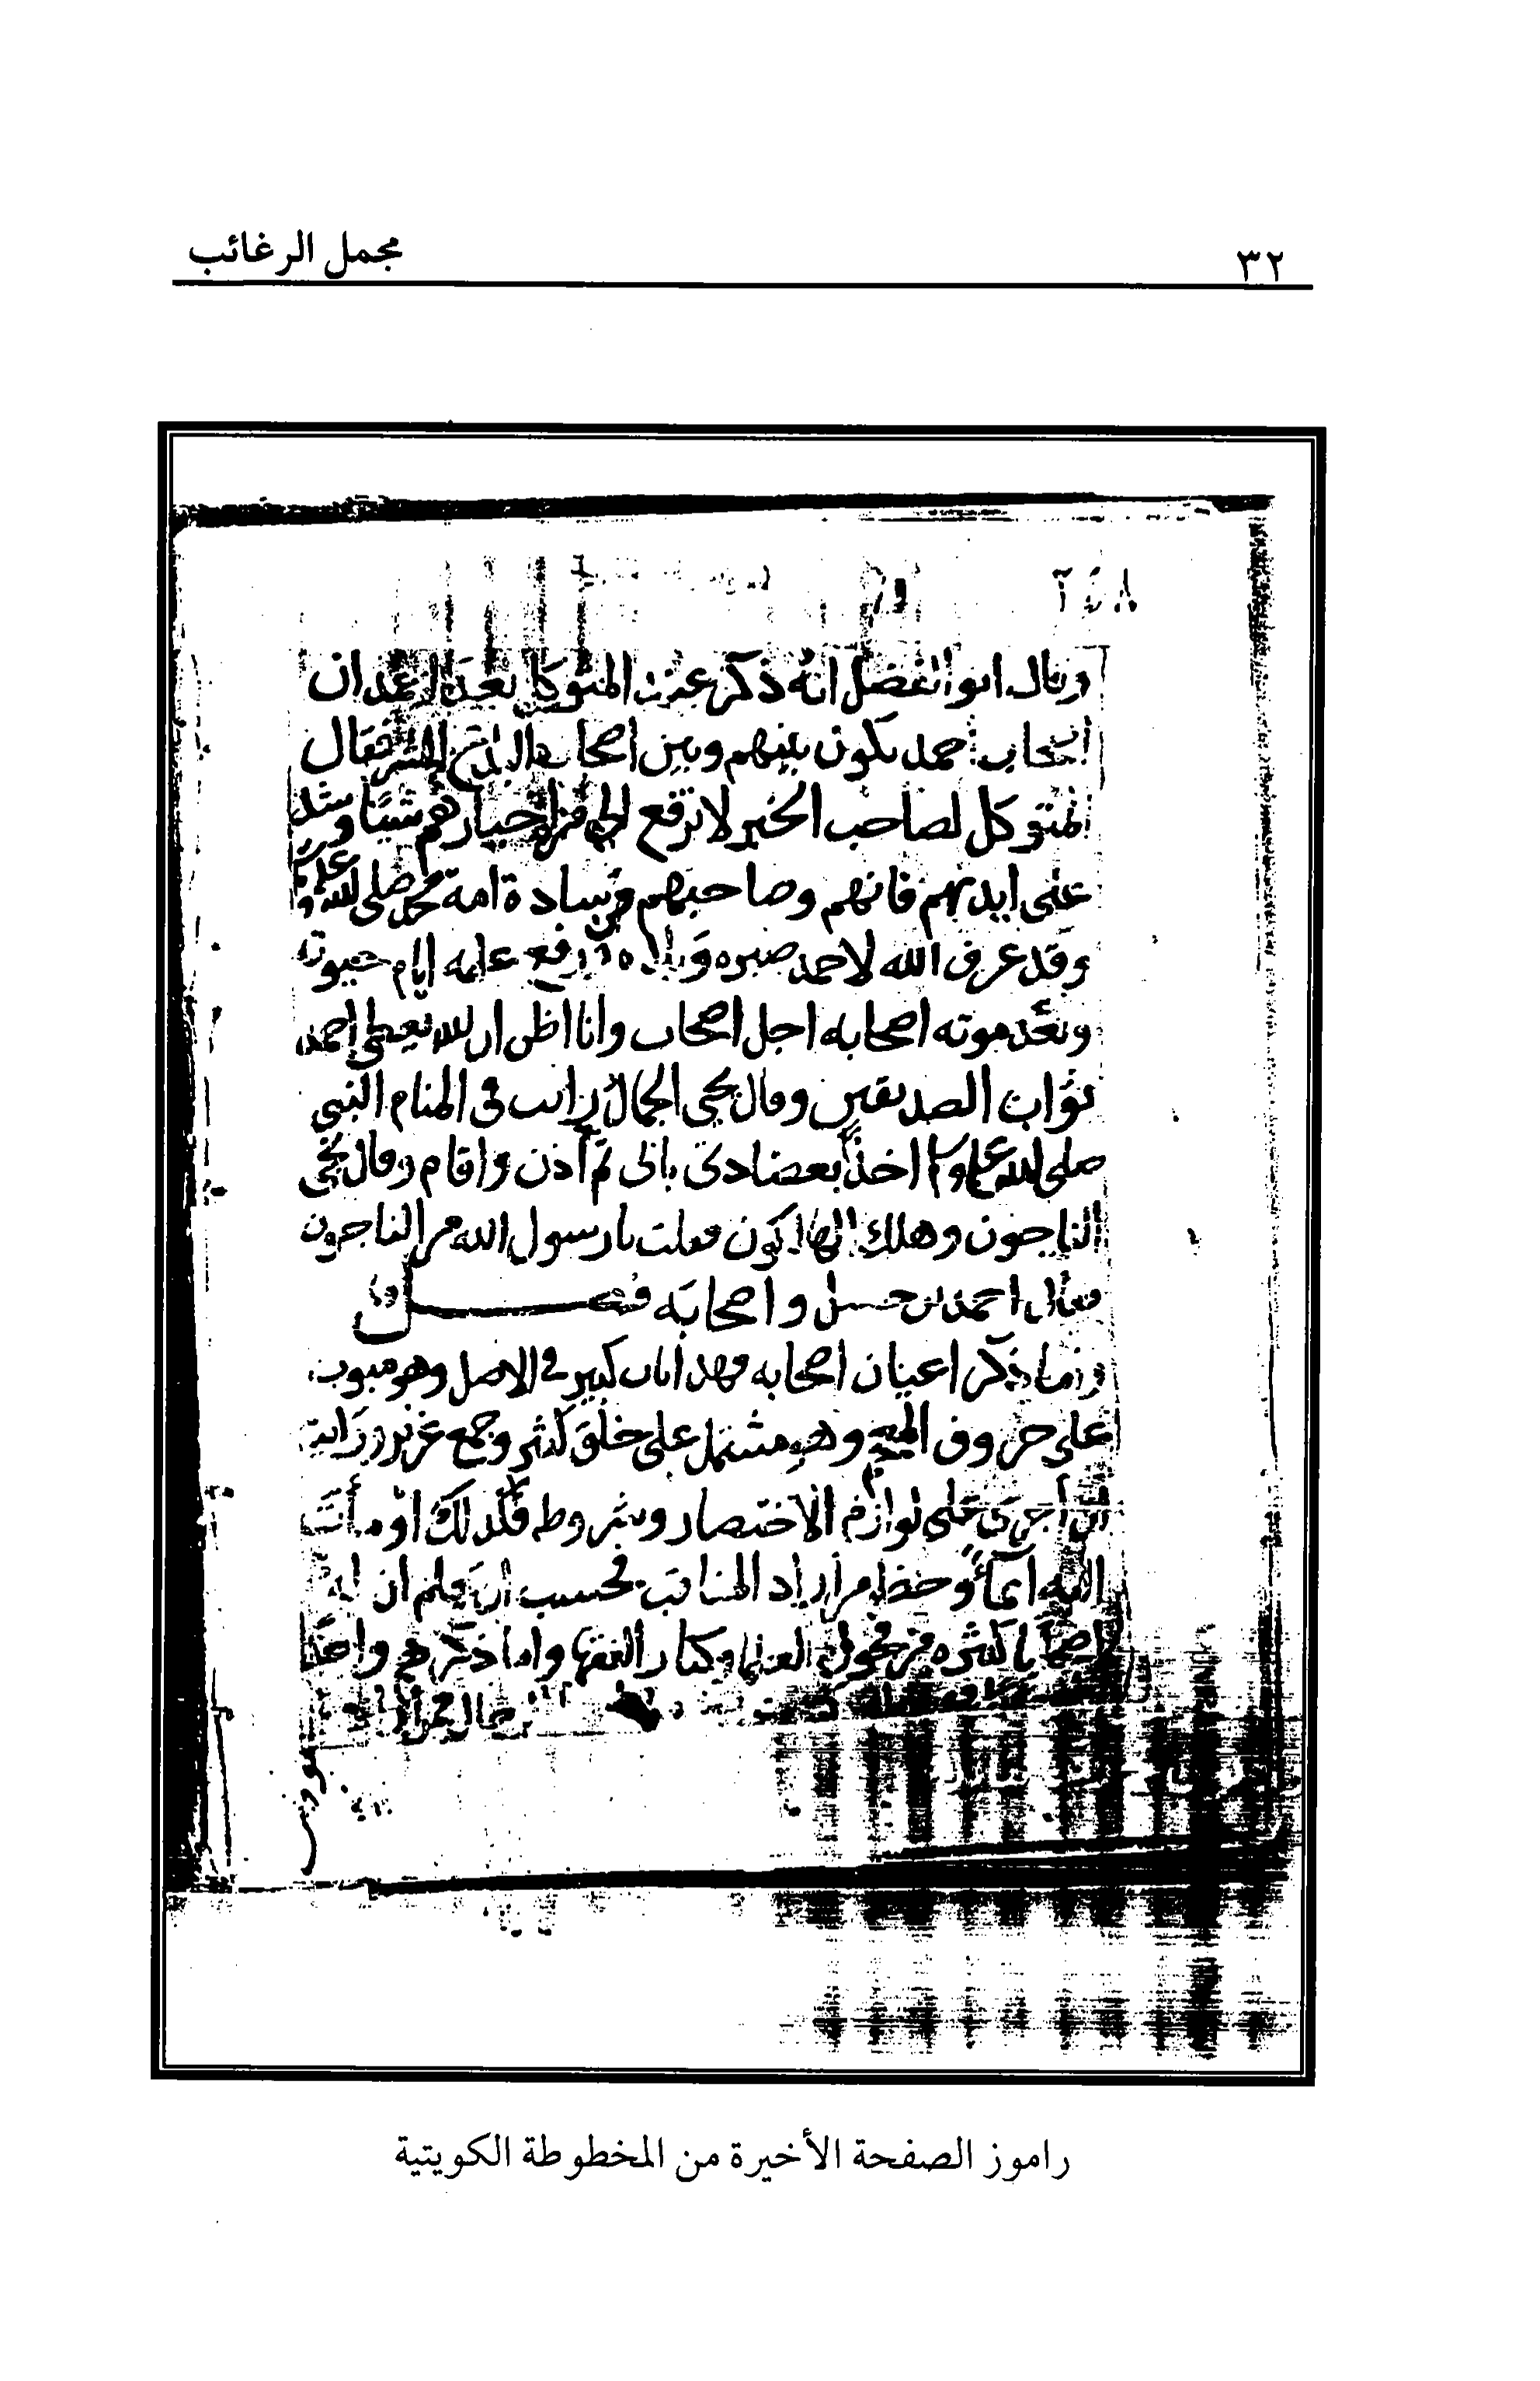 ٣٢
مجمل الرغائب
وقال ابو الفضل انه ذكر عند المتوكل بعد احمد ان
اصحاب احمد يكون بينهم وبين اصحاب البدع الشر فقال
المتوكل لصاحب الخبر لا ترفع الي من اخبارهم شيئا وشد
على ايديهم فانهم وصاحبهم من سادة امة محمد صلى الله عليه و
وقد عرف الله لاحمد صبره وبلاه ورفع علمه ايام حيوته
وبعد موته اصحابه اجل اصحاب وانا اظن ان الله يعطي احمد
ثواب الصديقين وقال يحيى الجمال رايت في المنام النبي
صلى الله عليه وسلم اخذ بعضادتي بابي ثم أذن واقام وقال نجى
الناجون وهلك الهالكون فقلت يا رسول الله من الناجون
فقال احمد بن حنبل واصحابه فصل
واما ذكر اعيان اصحابه فهذا باب كبير في الاصل وهو مبوب
على حروف المعجم وهو مشتمل على خلق كثير وجمع غزير ورايت
ان أجري على لوازم الاختصار وشروطه فلذلك اومأت
اليه ايماءً وحظ من اراد المناقب فحسب ان يعلم ان له
اصحابا كثيره من فحول العلما وكبار الفقها واما ذكرهم واحدًا
راموز الصفحة الأخيرة من المخطوطة الكويتية